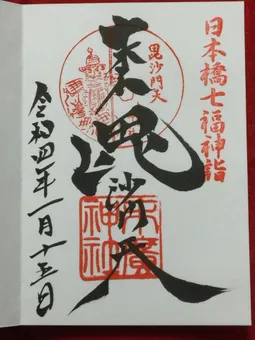 日本橋七福神詣
毘沙門天
末廣神社
毘沙門天
令和四年一月十五日